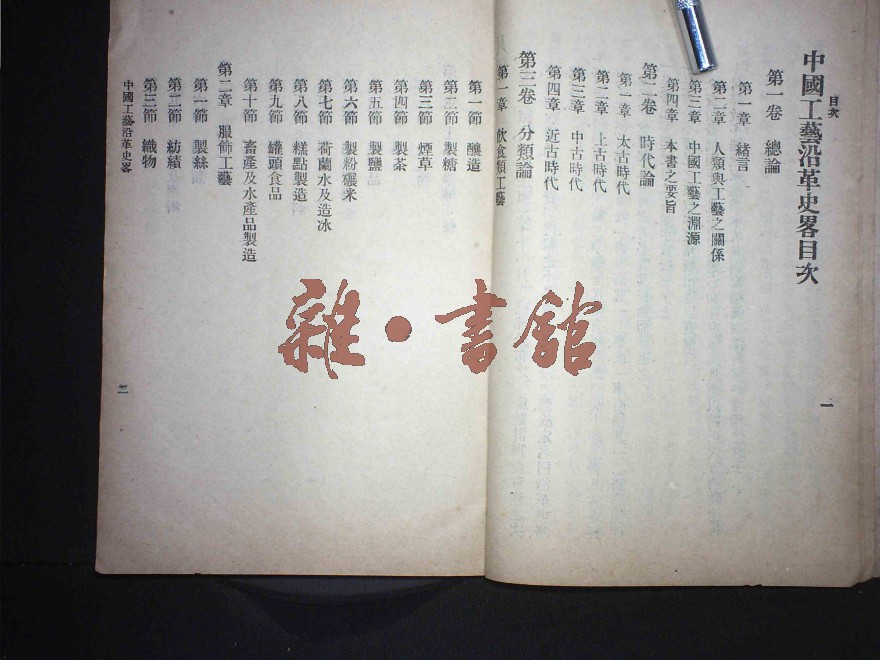 中國工藝沿革史畧目次
目次
一
第一卷 總論
第一章 緒言
第二章 人類與工藝之關係
第三章 中國工藝之淵源
第四章 本書之要旨
第二卷 時代論
第一章 太古時代
第二章 上古時代
第三章 中古時代
第四章 近古時代
第三卷 分類論
第一章 飲食類工藝
第一節 釀造
第二節 製糖
第三節 煙草
第四節 製茶
第五節 製鹽
第六節 製粉碾米
第七節 荷蘭水及造冰
第八節 糕點製造
第九節 罐頭食品
第十節 畜產及水產品製造
第二章 服飾工藝
第一節 製絲
第二節 紡績
第三節 織物
中國工藝沿革史畧
二
雜·書館